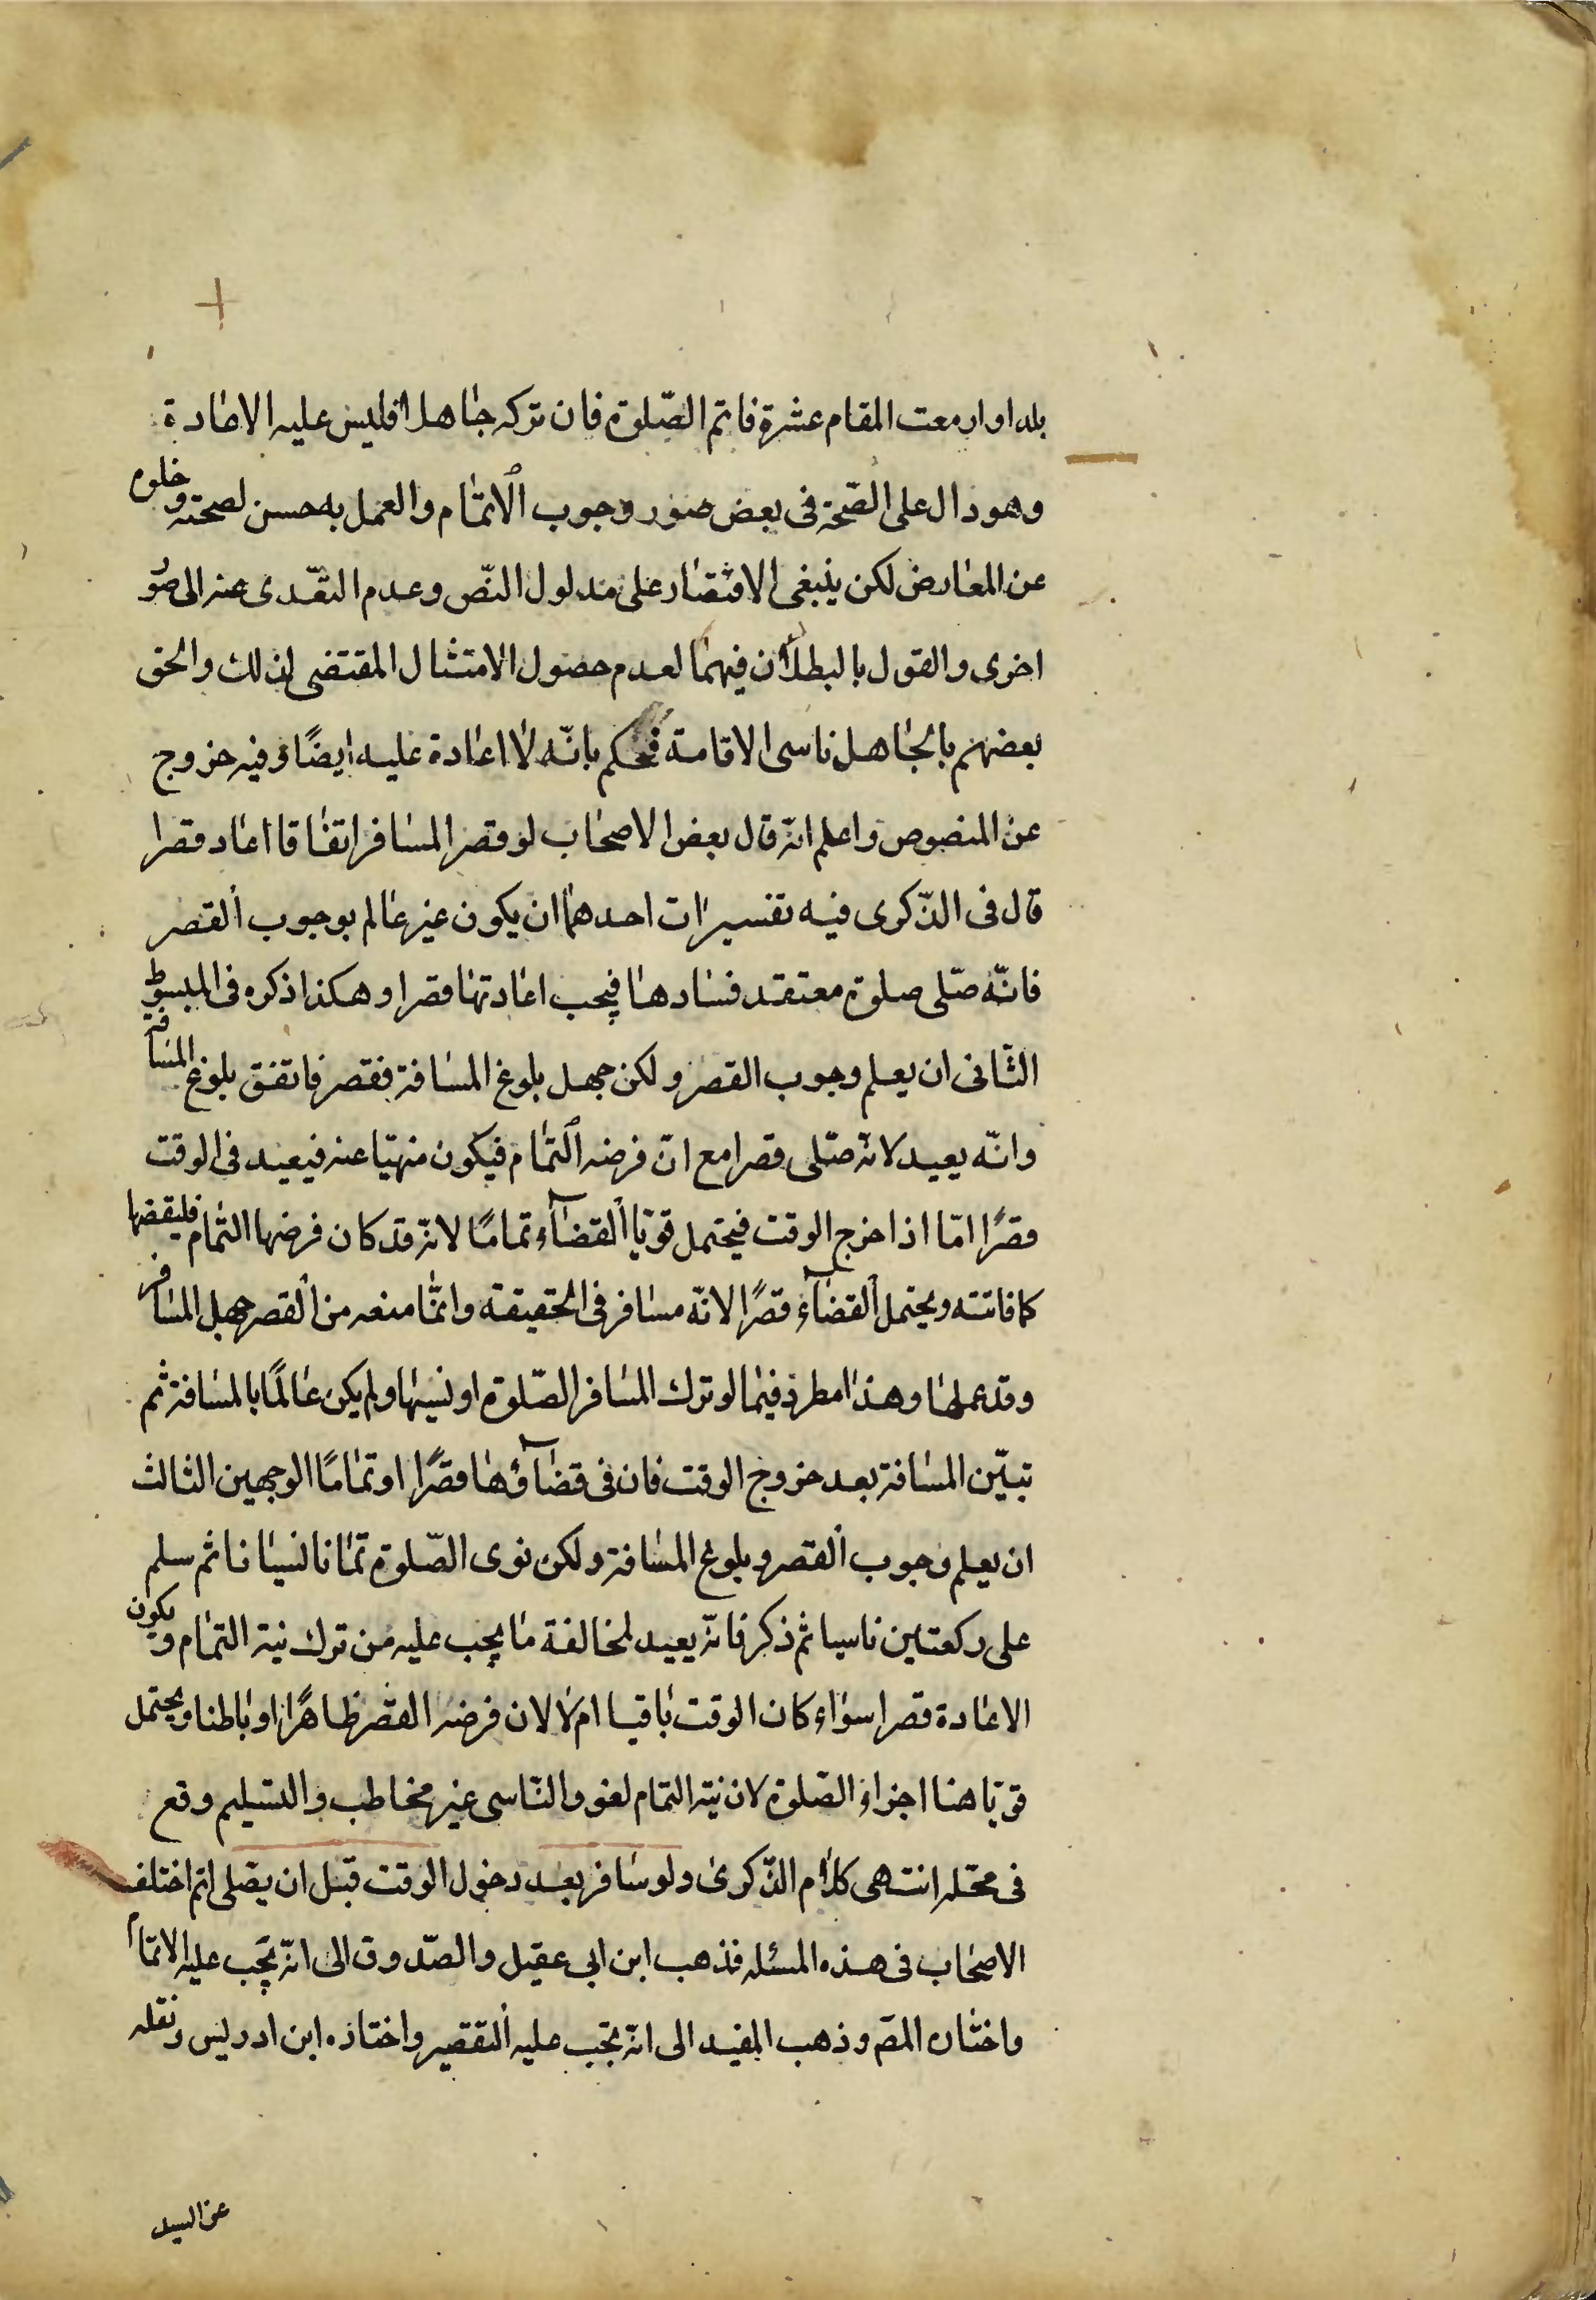 بلد او ازمعت المقام عشرة فاتم الصّلوة فان تركه جاهلا فليس عليه الاعادة
وهو دال على الصّحة فى بعض صور وجوب الاتمام والعمل به حسن لصحته وخلوه
عن المعارض لكن ينبغى الاقتصار على مدلول النّص وعدم التعّدى عنه الى صُو
اخرى والقول بالبطلان فيهما لعدم حصول الامتثال المقتضى لذلك والحق
بعضهم بالجاهل ناسى الاقامة فحكم بانّه لا اعادة عليه ايضًا وفيه خروج
عن المنصوص واعلم انّه قال بعض الاصحاب لو قصر المسافر اتفاقا اعاد قصرا
قال فى الذّكرى فيه تفسيرات احدهما ان يكون غير عالم بوجوب القصر
فانّه صلّى صلوة معتقد فسادها فيجب اعادتها قصرا وهكذا ذكره فى المبسوط
الثّانى ان يعلم وجوب القصر ولكن جهل بلوغ المسافة فقصر فاتفق بلوغ المسافة
وانّه يعيد لانّه صلّى قصرا مع انّ فرضه التمام فيكون منهيّا عنه فيعيد فى الوقت
قصرًا امّا اذا خرج الوقت فيحتمل قويّا القضآء تمامًا لانّه قد كان فرضها التمام فليقضها
كما فاتته ويحتمل القضآء قصرًا لانّه مسافر فى الحقيقة وانّما منعه من القصر جهل المسافر
وقد عملها وهذا مطرد فيما لو ترك المسافر الصّلوة او نسيها ولم يكن عالمًا بالمسافة ثم
تبيّن المسافة بعد خروج الوقت فان فى قضآؤها قصرًا او تمامًا الوجهين الثالث
ان يعلم وجوب القصر وبلوغ المسافة ولكن نوى الصّلوة تمانا نسيانا ثم سلم
على ركعتين ناسيا ثم ذكر فانّه يعيد لمخالفة ما يجب عليه من ترك نية التمام ويكون
الاعادة قصرا سواء كان الوقت باقيا ام لا لان فرضه القصر ظاهرًا او باطنا ويحتمل
قويّا هنا اجزاء الصّلوة لان نيّة التمام لغو والنّاسى غير مخاطب والتسليم وقع
فى محلّه انتهى كلام الذّكرى ولو سافر بعد دخول الوقت قبل ان يصّلى اتم اختلف
الاصحاب فى هذه المسئله فذهب ابن ابى عقيل والصّدوق الى انّه يجب عليه الاتمام
واختاره المصّ وذهب المفيد الى انّه يجب عليه التقصير واختاره ابن ادريس ونقله
عن السيد